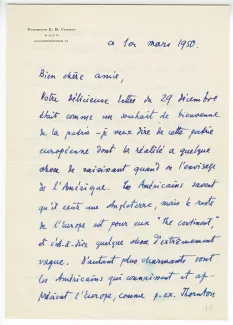 Professor E. R. Curtius
BONN
ce 1er mars 1950.
Bien chère amie,
Votre délicieuse lettre du 29 décembre
était comme un souhait de bienvenue
de la patrie – je veux dire de cette patrie
européenne dont la réalité a quelque
chose de saisissant quand on l'envisage
de l'Amérique. Les Américains savent
qu'il existe une Angleterre, mais le reste
de l'Europe est pour eux "The continent",
et c'est-à-dire quelque chose d'extrêmement
vague. D'autant plus charmants sont
les Américains qui connaissent et ap-
précient l'Europe, comme p. ex. Thornton